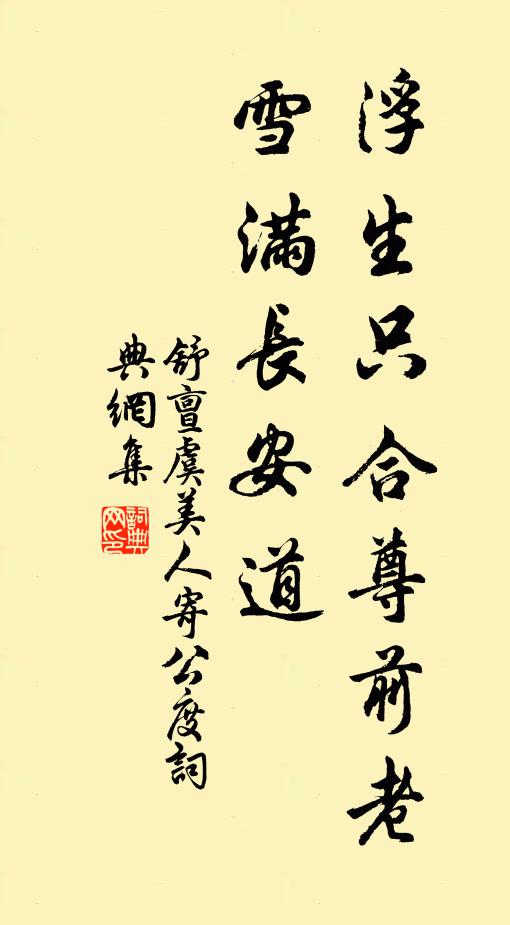 浮生只合尊前老
雪滿長安道
舒亶虞美人寄公度詞
典網集
詞典
网印